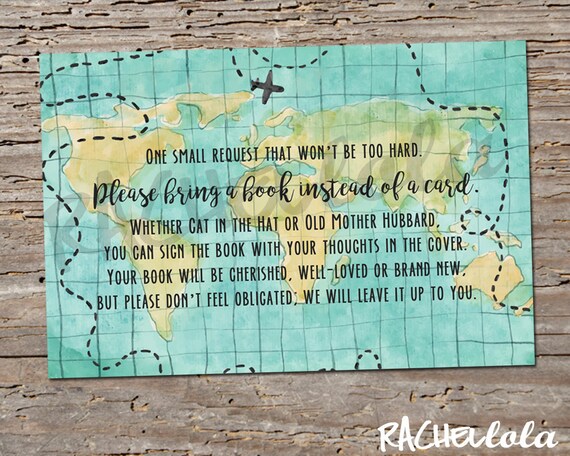 One small request that won't be too hard.
Please bring a book instead of a card.
Whether Cat in the Hat or Old Mother Hubbard,
you can sign the book with your thoughts in the cover.
Your book will be cherished, well-loved or brand new,
but please don't feel obligated; we will leave it up to you.
RACHELlola